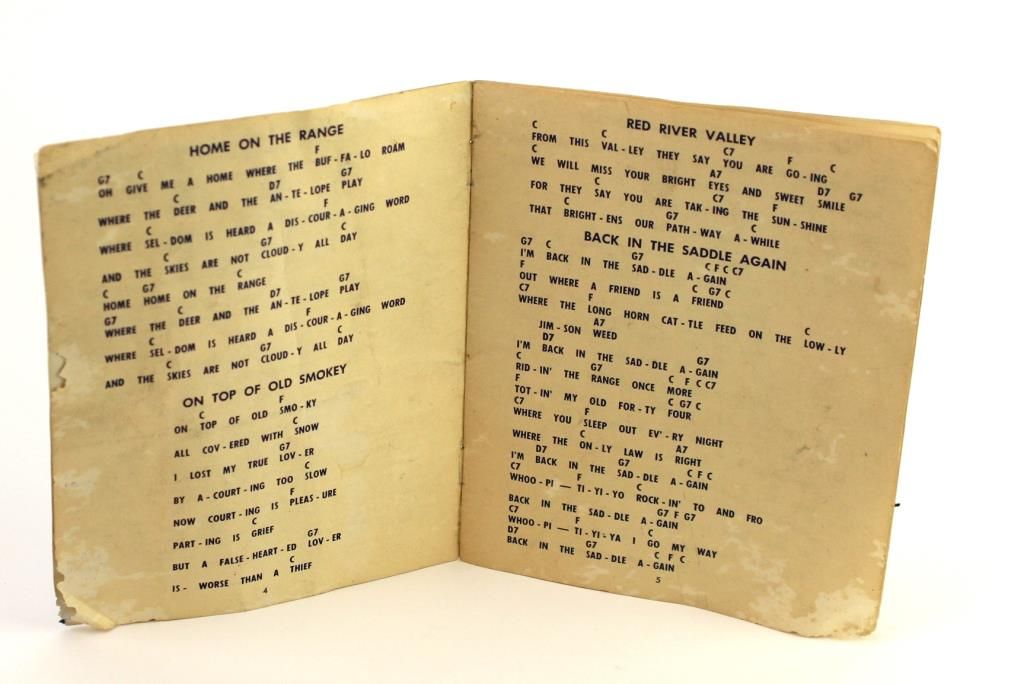 HOME ON THE RANGE
G7 C F
OH GIVE ME A HOME WHERE THE BUF - FA - LO ROAM
C D7 G7
WHERE THE DEER AND THE AN - TE - LOPE PLAY
C F
WHERE SEL - DOM IS HEARD A DIS - COUR - A - GING WORD
C G7 C
AND THE SKIES ARE NOT CLOUD - Y ALL DAY
C G7 C
HOME HOME ON THE RANGE
G7 C D7 G7
WHERE THE DEER AND THE AN - TE - LOPE PLAY
C F
WHERE SEL - DOM IS HEARD A DIS - COUR - A - GING WORD
C G7 C
AND THE SKIES ARE NOT CLOUD - Y ALL DAY
ON TOP OF OLD SMOKEY
C F
ON TOP OF OLD SMO - KY
C
ALL COV - ERED WITH SNOW
G7
I LOST MY TRUE LOV - ER
C
BY A - COURT - ING TOO SLOW
F
NOW COURT - ING IS PLEAS - URE
C
PART - ING IS GRIEF
G7
BUT A FALSE - HEART - ED LOV - ER
C
IS - WORSE THAN A THIEF
4
RED RIVER VALLEY
C C C7 F C
FROM THIS VAL - LEY THEY SAY YOU ARE GO - ING
C A7 D7 G7
WE WILL MISS YOUR BRIGHT EYES AND SWEET SMILE
C C7 F
FOR THEY SAY YOU ARE TAK - ING THE SUN - SHINE
C G7 C
THAT BRIGHT - ENS OUR PATH - WAY A - WHILE
BACK IN THE SADDLE AGAIN
G7 C G7 C F C C7
I'M BACK IN THE SAD - DLE A - GAIN
F C G7 C
OUT WHERE A FRIEND IS A FRIEND
C7 F C
WHERE THE LONG HORN CAT - TLE FEED ON THE LOW - LY
A7
JIM - SON WEED
D7 G7
I'M BACK IN THE SAD - DLE A - GAIN
C G7 C F C C7
RID - IN' THE RANGE ONCE MORE
F C G7 C
TOT - IN' MY OLD FOR - TY FOUR
C7 F
WHERE YOU SLEEP OUT EV' - RY NIGHT
C A7
WHERE THE ON - LY LAW IS RIGHT
D7 G7 C F C
I'M BACK IN THE SAD - DLE A - GAIN
C7 F C
WHOO - PI — TI - YI - YO ROCK - IN' TO AND FRO
G7 F G7
BACK IN THE SAD - DLE A - GAIN
C7 F C
WHOO - PI — TI - YI - YA I GO MY WAY
D7 G7 C F C
BACK IN THE SAD - DLE A - GAIN
5